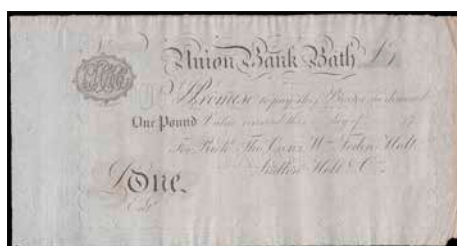 Union Bank Bath £1
I Promise to pay the Bearer on demand
One Pound Value received this day of 17
For Rich.d Tho.s Wm.
Hall & Co.
£One.
Ent.d